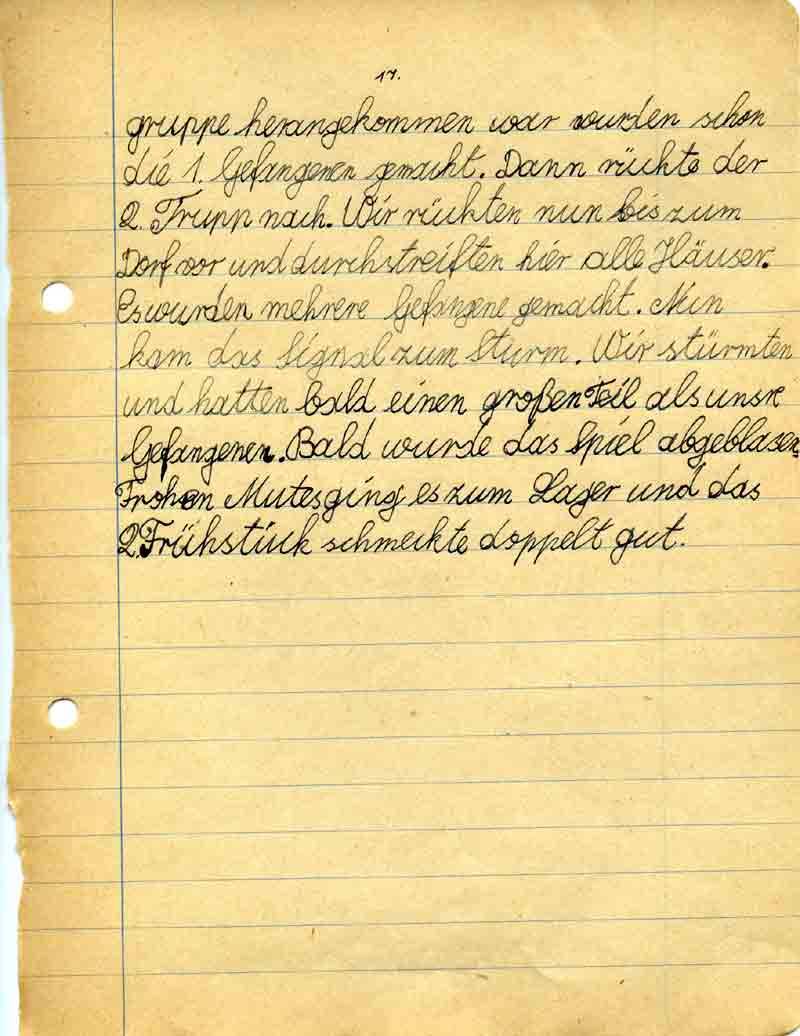 17.
gruppe herangekommen war wurden schon
die 1. Gefangenen gemacht. Dann rückte der
2. Trupp nach. Wir rückten nun bis zum
Dorf vor und durchstreiften hier alle Häuser.
Es wurden mehrere Gefangene gemacht. Nun
kam das Signal zum Sturm. Wir stürmten
und hatten bald einen großen Teil als unsre
Gefangenen. Bald wurde das Spiel abgeblasen.
Frohen Mutes ging es zum Lager und das
2. Frühstück schmeckte doppelt gut.